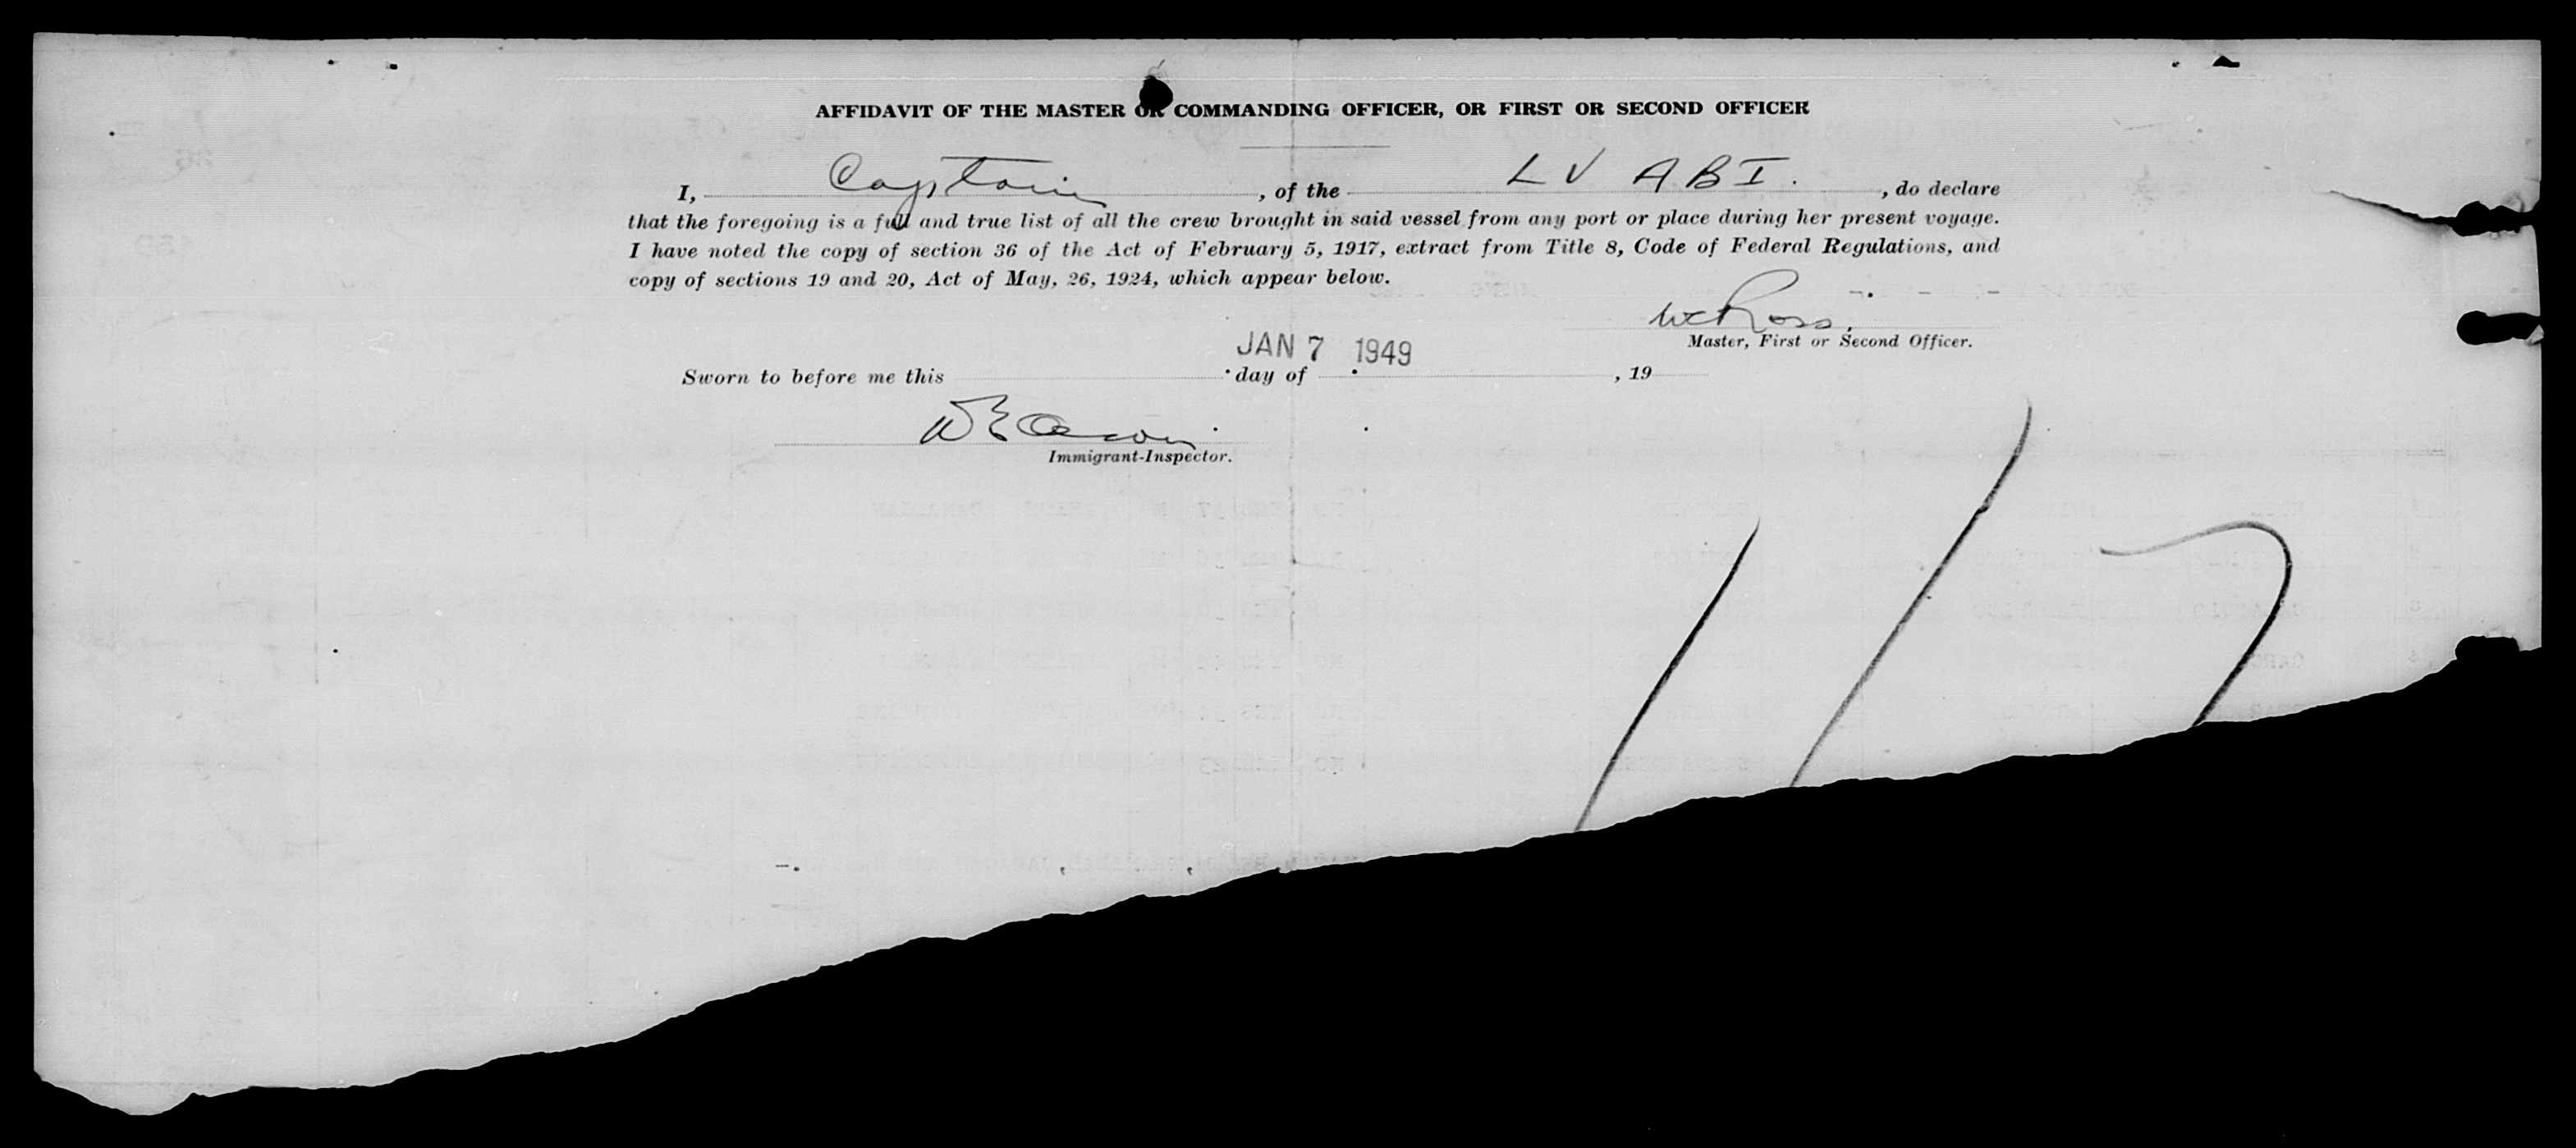 AFFIDAVIT OF THE MASTER OR COMMANDING OFFICER, OR FIRST OR SECOND OFFICER
I, Captain, of the LV ABI., do declare
that the foregoing is a full and true list of all the crew brought in said vessel from any port or place during her present voyage.
I have noted the copy of section 36 of the Act of February 5, 1917, extract from Title 8, Code of Federal Regulations, and
copy of sections 19 and 20, Act of May, 26, 1924, which appear below.
Ross
Master, First or Second Officer.
JAN 7 1949
Sworn to before me this day of , 19
Immigrant-Inspector.
117